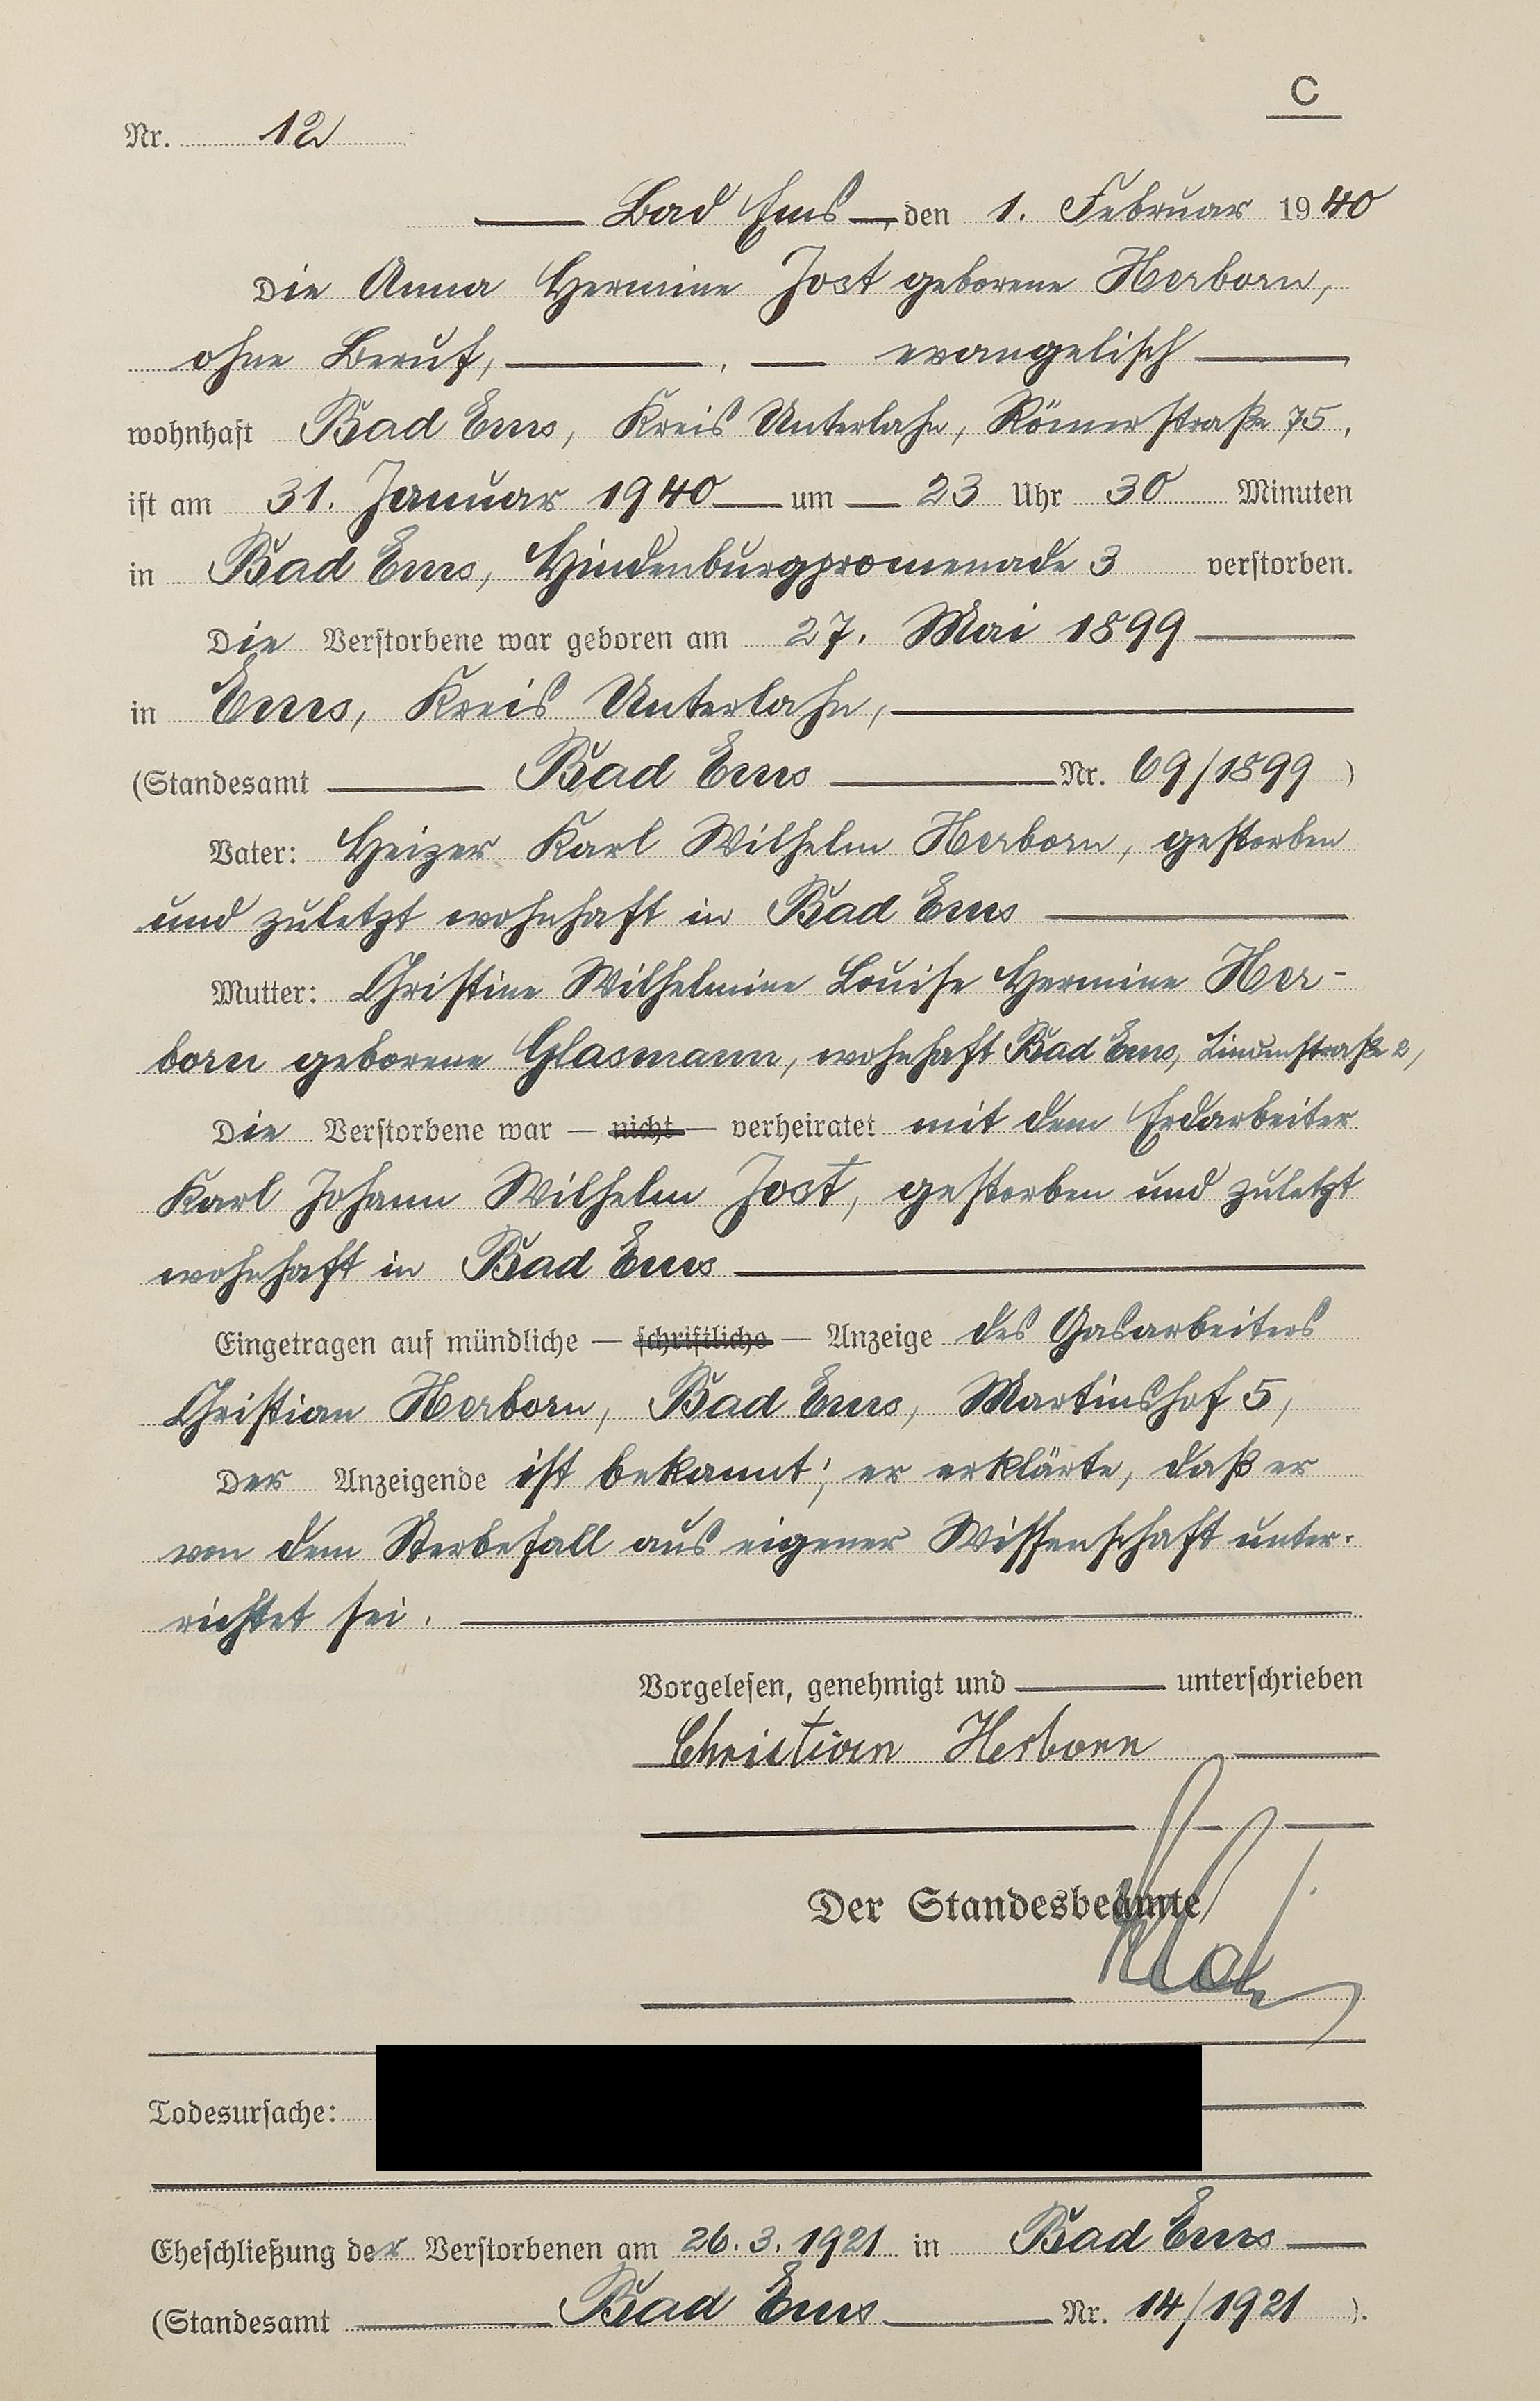 C
Nr. 12
Bad Ems, den 1. Februar 1940
Die Anna Hermine Jost geborene Herborn,
ohne Beruf, evangelisch
wohnhaft Bad Ems, Kreis Unterlahn, Römerstraße 75,
ist am 31. Januar 1940 um 23 Uhr 30 Minuten
in Bad Ems, Hindenburgpromenade 3 verstorben.
Die Verstorbene war geboren am 27. Mai 1899
in Ems, Kreis Unterlahn,
(Standesamt Bad Ems Nr. 69/1899)
Vater: Heizer Karl Wilhelm Herborn, gestorben
und zuletzt wohnhaft in Bad Ems
Mutter: Christine Wilhelmine Louise Hermine Her-
born geborene Glasmann, wohnhaft Bad Ems, Lindenstraße 2,
Die Verstorbene war — nicht — verheiratet mit dem Erdarbeiter
Karl Johann Wilhelm Jost, gestorben und zuletzt
wohnhaft in Bad Ems
Eingetragen auf mündliche — schriftliche — Anzeige des Gasarbeiters
Christian Herborn, Bad Ems, Martinshof 5,
Der Anzeigende ist bekannt; er erklärte, daß er
von dem Sterbefall aus eigener Wissenschaft unter-
richtet sei.
Vorgelesen, genehmigt und unterschrieben
Christian Herborn
Der Standesbeamte
Todesursache:
Eheschließung der Verstorbenen am 26.3.1921 in Bad Ems
(Standesamt Bad Ems Nr. 14/1921).